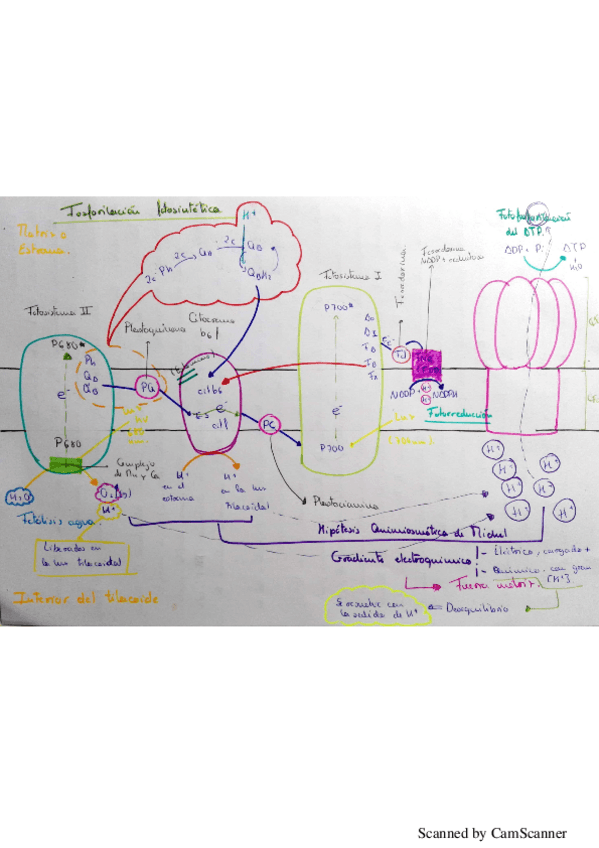 Fosforilación fotosintética
Matriz o
Estroma.
H⁺
2e⁻ Ph 2e⁻ QA 2e⁻ QB
QBH2
Fotofosforilación
del ATP.
ADP + Pi
ATP
H2O
Ferredoxina
NADP+ reductasa
Ferredoxina
Fotosistema I
P700*
A0
A1
Fd
NADP+
H⁺
H⁺
NADPH
Fotorreducción
Luz
e⁻
P700
Fotosistema II
P680*
Ph
QA
QB
e⁻
P680
Plastoquinona
Citocromo
b6f
PQ
cit b6
cit f
e⁻
PC
Plastocianina
Complejo
de Mn y Ca
H2O
H⁺
Fotólisis agua
Liberados en
la luz tilacoidal
Interior del tilacoide
H⁺
en el
estroma
H⁺
en la luz
tilacoidal
H⁺
H⁺
H⁺
H⁺
H⁺
H⁺
H⁺
H⁺
Hipótesis Quimiosmótica de Michel
Gradiente electroquímico:
- Eléctrico, cargado +
- Químico, con gran
[H⁺]
Fuerza motriz
= Desequilibrio
Se resuelve con
la salida de H⁺
Scanned by CamScanner